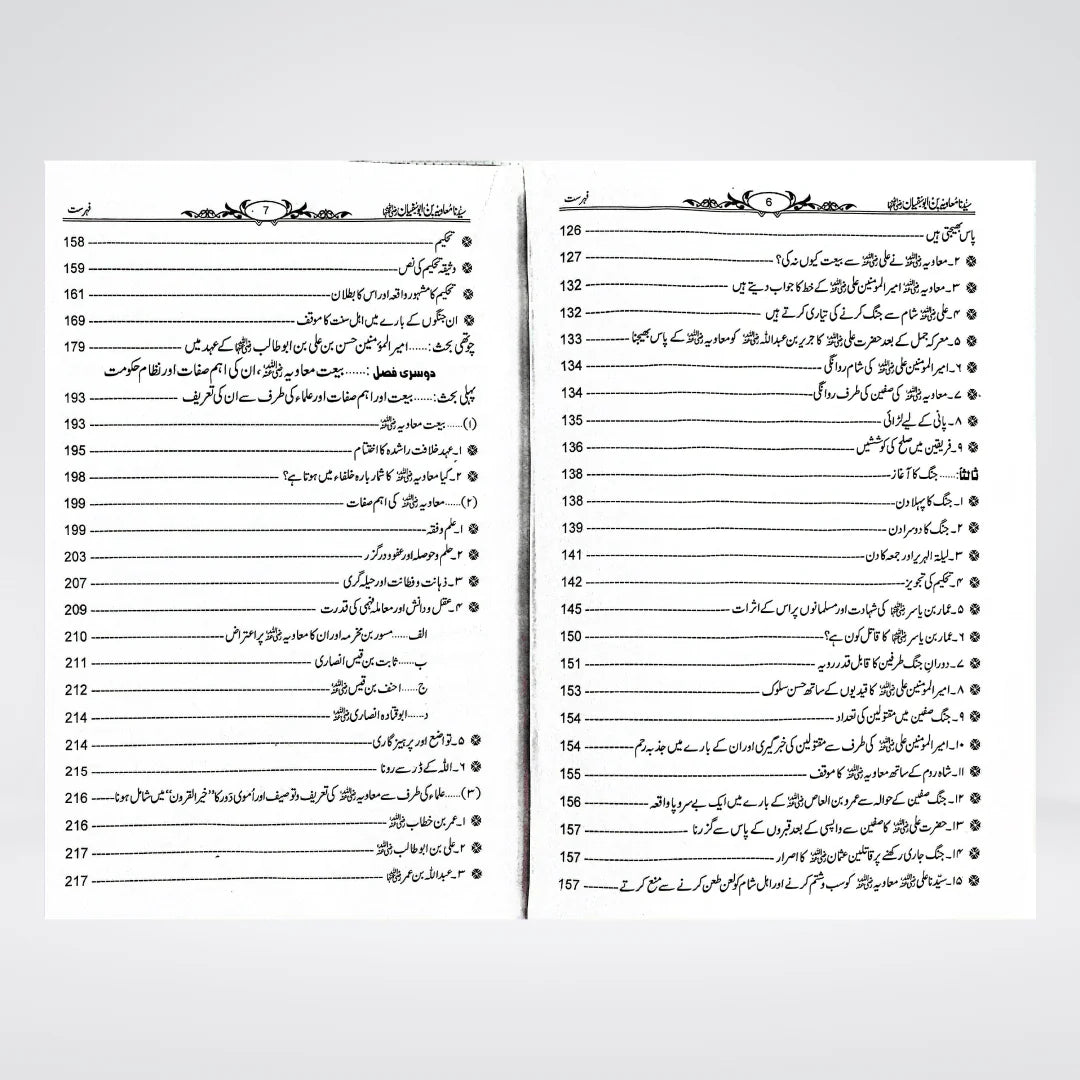 سیدنا معاویہ بن ابوسفیان رضی اللہ عنہما 6 فہرست
پاس بھیجتی ہیں 126
۲۔ معاویہ رضی اللہ عنہ نے علی رضی اللہ عنہ سے بیعت کیوں نہ کی؟ 127
۳۔ معاویہ رضی اللہ عنہ امیر المومنین علی رضی اللہ عنہ کے خط کا جواب دیتے ہیں 132
۴۔ علی رضی اللہ عنہ شام سے جنگ کرنے کی تیاری کرتے ہیں 132
۵۔ معرکہ جمل کے بعد حضرت علی رضی اللہ عنہ کا جریر بن عبداللہ رضی اللہ عنہ کو معاویہ رضی اللہ عنہ کے پاس بھیجنا 133
۶۔ امیر المومنین علی رضی اللہ عنہ کی شام روانگی 134
۷۔ معاویہ رضی اللہ عنہ کی صفین کی طرف روانگی 134
۸۔ پانی کے لیے لڑائی 135
۹۔ فریقین میں صلح کی کوششیں 136
ثالثًا:...... جنگ کا آغاز 138
۱۔ جنگ کا پہلا دن 138
۲۔ جنگ کا دوسرا دن 139
۳۔ لیلۃ الہریر اور جمعہ کا دن 141
۴۔ تحکیم کی تجویز 142
۵۔ عمار بن یاسر رضی اللہ عنہ کی شہادت اور مسلمانوں پر اس کے اثرات 145
۶۔ عمار بن یاسر رضی اللہ عنہ کا قاتل کون ہے؟ 150
۷۔ دورانِ جنگ طرفین کا قابل قدر رویہ 151
۸۔ امیر المومنین علی رضی اللہ عنہ کا قیدیوں کے ساتھ حسن سلوک 153
۹۔ جنگ صفین میں مقتولین کی تعداد 154
۱۰۔ امیر المومنین علی رضی اللہ عنہ کی طرف سے مقتولین کی خبرگیری اور ان کے بارے میں جذبہ رحم 154
۱۱۔ شاہ روم کے ساتھ معاویہ رضی اللہ عنہ کا موقف 155
۱۲۔ جنگ صفین کے حوالہ سے عمرو بن العاص رضی اللہ عنہ کے بارے میں ایک بے سروپا واقعہ 156
۱۳۔ حضرت علی رضی اللہ عنہ کا صفین سے واپسی کے بعد قبروں کے پاس سے گزرنا 157
۱۴۔ جنگ جاری رکھنے پر قاتلین عثمان رضی اللہ عنہ کا اصرار 157
۱۵۔ سیّدنا علی رضی اللہ عنہ معاویہ رضی اللہ عنہ کو سب وشتم کرنے اور اہل شام کو لعن طعن کرنے سے منع کرتے 157
سیدنا معاویہ بن ابوسفیان رضی اللہ عنہما 7 فہرست
تحکیم 158
وثیقہ تحکیم کی نص 159
تحکیم کا مشہور واقعہ اور اس کا بطلان 161
ان جنگوں کے بارے میں اہل سنت کا موقف 169
چوتھی بحث:...... امیر المؤمنین حسن بن علی بن ابوطالب رضی اللہ عنہما کے عہد میں 179
دوسری فصل:...... بیعت معاویہ رضی اللہ عنہ، ان کی اہم صفات اور نظام حکومت
پہلی بحث:...... بیعت اور اہم صفات اور علماء کی طرف سے ان کی تعریف 193
(۱)...... بیعت معاویہ رضی اللہ عنہ 193
۱۔ عہد خلافت راشدہ کا اختتام 195
۲۔ کیا معاویہ رضی اللہ عنہ کا شمار بارہ خلفاء میں ہوتا ہے؟ 198
(۲)...... معاویہ رضی اللہ عنہ کی اہم صفات 199
۱۔ علم وفقہ 199
۲۔ حلم وحوصلہ اور عفوودرگزر 203
۳۔ ذہانت وفطانت اور حیلہ گری 207
۴۔ عقل ودانش اور معاملہ فہمی کی قدرت 209
الف...... مسور بن مخرمہ اور ان کا معاویہ رضی اللہ عنہ پر اعتراض 210
ب...... ثابت بن قیس انصاری 211
ج...... احنف بن قیس رضی اللہ عنہ 212
د...... ابوقتادہ انصاری رضی اللہ عنہ 214
۵۔ تواضع اور پرہیزگاری 214
۶۔ اللہ کے ڈر سے رونا 215
(۳)...... علماء کی طرف سے معاویہ رضی اللہ عنہ کی تعریف وتوصیف اور اُموی دَور کا ”خیر القرون“ میں شامل ہونا 216
۱۔ عمر بن خطاب رضی اللہ عنہ 216
۲۔ علی بن ابوطالب رضی اللہ عنہ 217
۳۔ عبداللہ بن عمر رضی اللہ عنہما 217